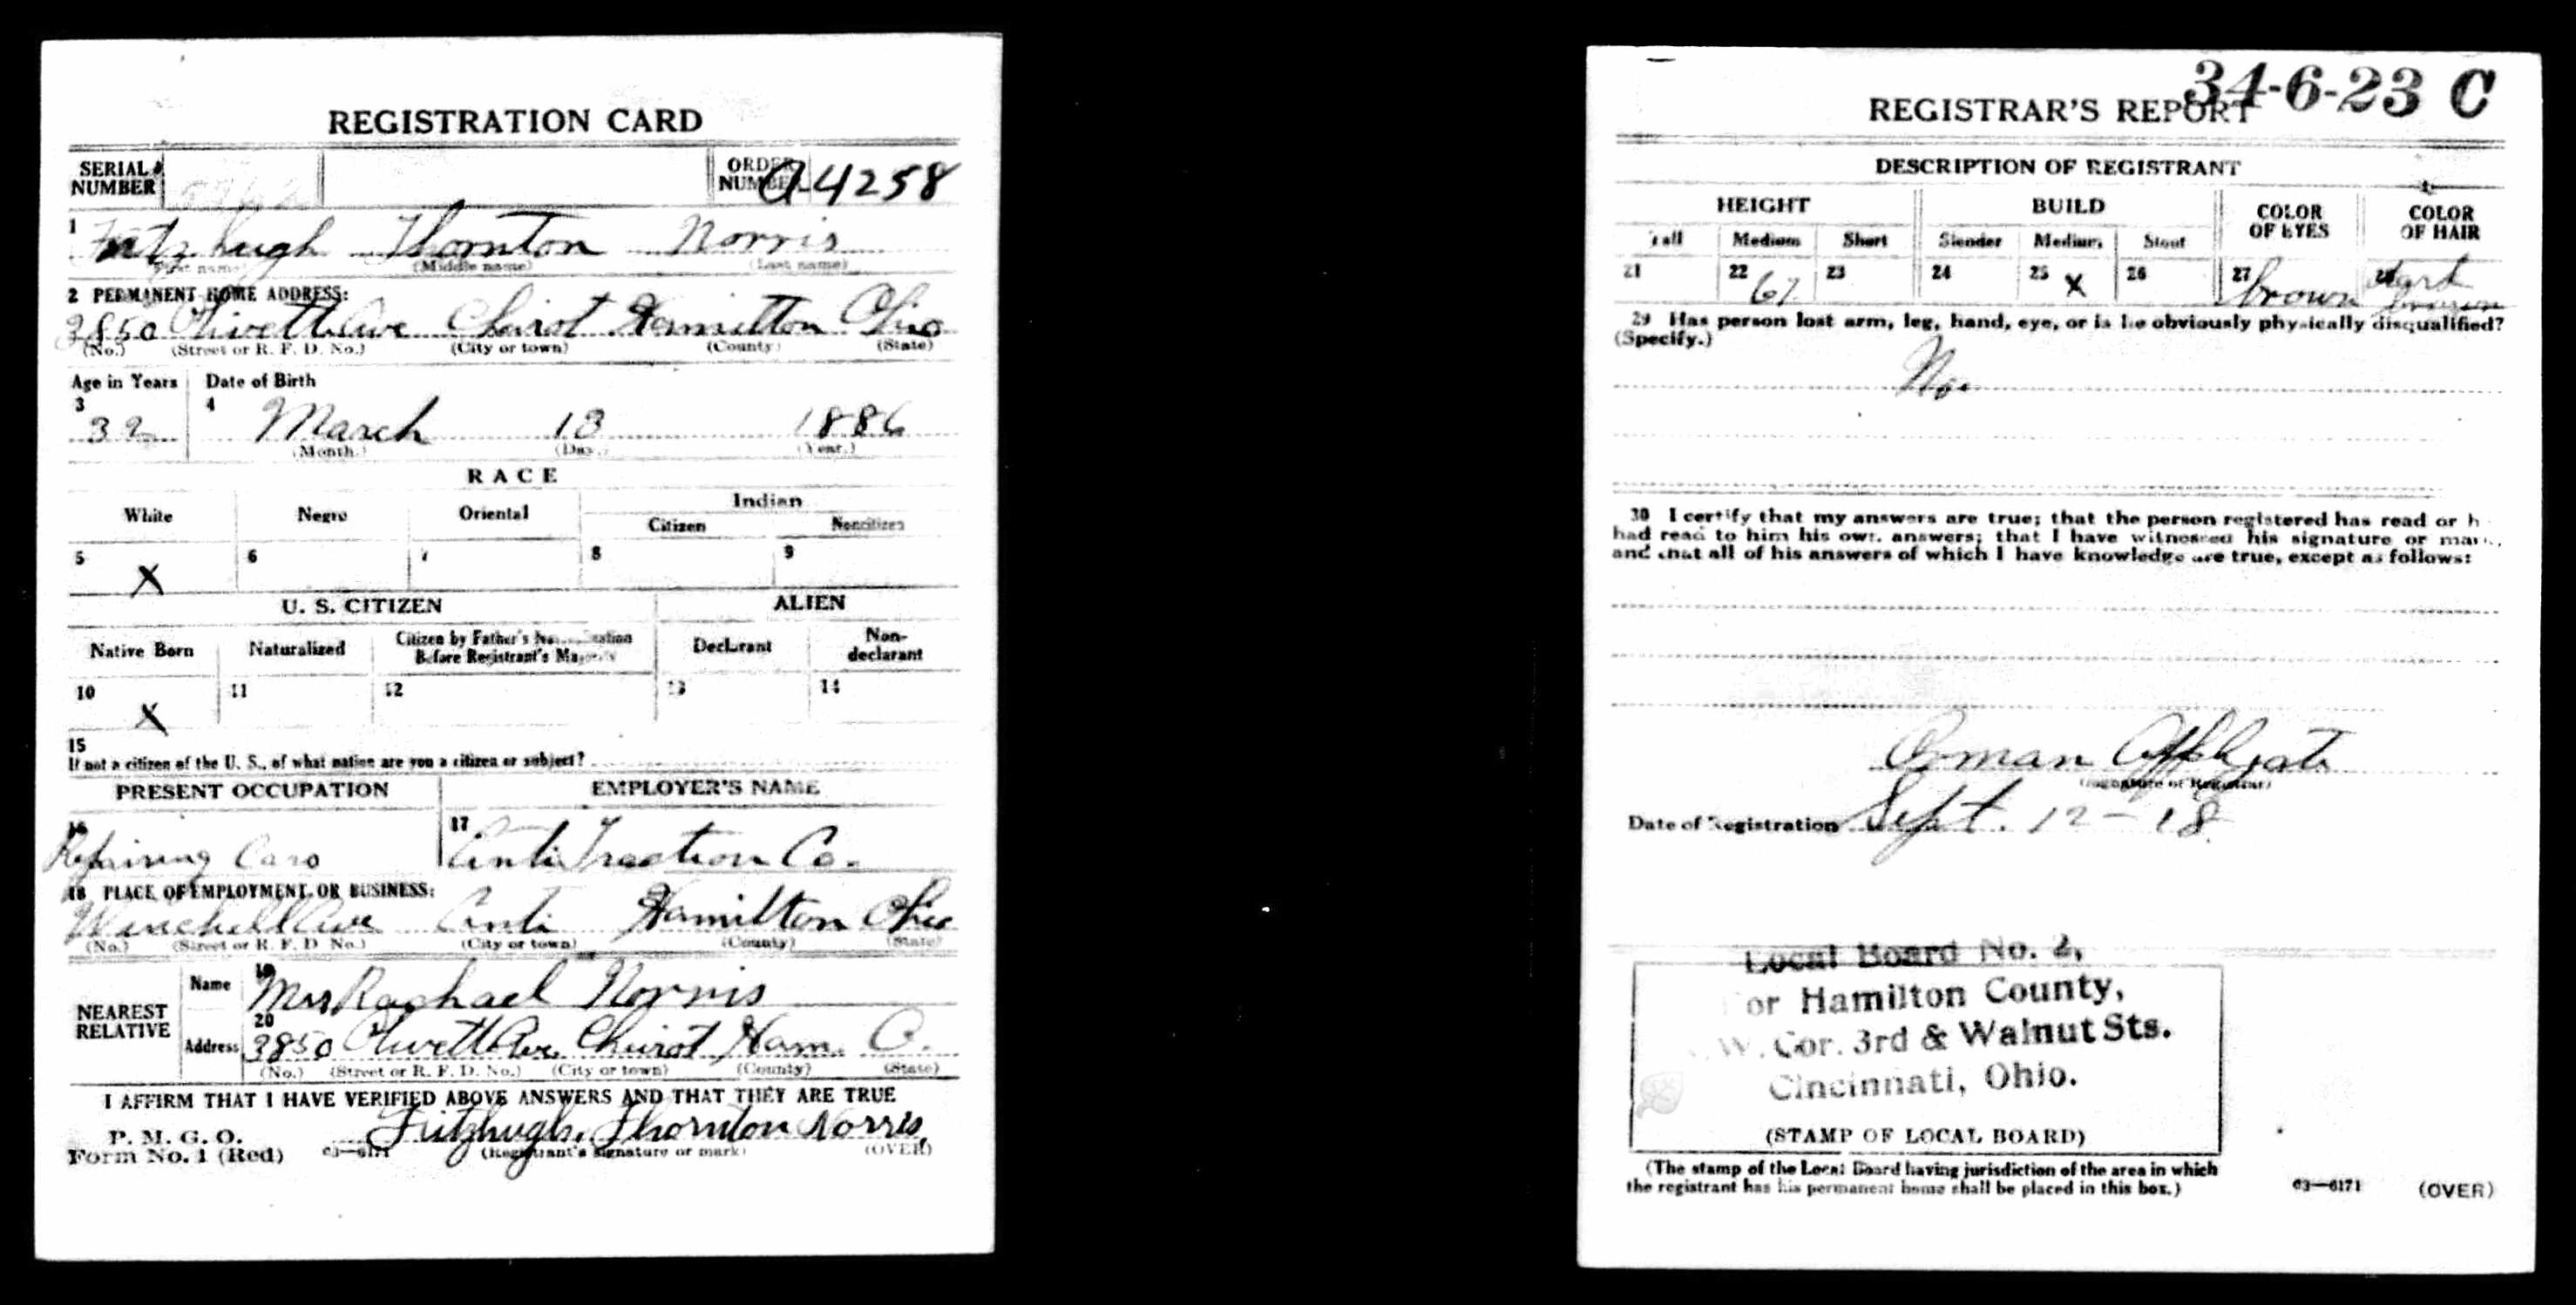 REGISTRATION CARD
SERIAL NUMBER
ORDER NUMBER A4258
1 Fitzhugh Thornton Norris
(First name) (Middle name) (Last name)
2 PERMANENT HOME ADDRESS:
3850 Olivett Ave Cheviot Hamilton Ohio
(No.) (Street or R. F. D. No.) (City or town) (County) (State)
Age in Years Date of Birth
3 4
32 March 13 1886
(Month.) (Day.) (Year.)
RACE
White Negro Oriental Indian
Citizen Noncitizen
5 6 7 8 9
X
U. S. CITIZEN ALIEN
Native Born Naturalized Citizen by Father's Naturalization Before Registrant's Majority Declarant Non-declarant
10 11 12 13 14
X
15
If not a citizen of the U. S., of what nation are you a citizen or subject?
PRESENT OCCUPATION EMPLOYER'S NAME
16 17
Repairing Cars Cinti Traction Co.
18 PLACE OF EMPLOYMENT OR BUSINESS:
Winchell Ave Cinti Hamilton Ohio
(No.) (Street or R. F. D. No.) (City or town) (County) (State)
NEAREST RELATIVE
Name 19 Mrs Rachael Norris
Address 20 3850 Olivett Ave. Cheviot Ham. O.
(No.) (Street or R. F. D. No.) (City or town) (County) (State)
I AFFIRM THAT I HAVE VERIFIED ABOVE ANSWERS AND THAT THEY ARE TRUE
P. M. G. O.
Form No. 1 (Red) 03—6171 Fitzhugh Thornton Norris
(Registrant's signature or mark) (OVER)
34-6-23 C
REGISTRAR'S REPORT
DESCRIPTION OF REGISTRANT
HEIGHT BUILD COLOR OF EYES COLOR OF HAIR
Tall Medium Short Slender Medium Stout
21 22 67 23 24 25 X 26 27 brown 28 dark brown
29 Has person lost arm, leg, hand, eye, or is he obviously physically disqualified?
(Specify.)
No.
30 I certify that my answers are true; that the person registered has read or h
had read to him his own answers; that I have witnessed his signature or mark,
and that all of his answers of which I have knowledge are true, except as follows:
Orman Applegate
(Signature of Registrar)
Date of Registration Sept. 12-18
Local Board No. 2,
or Hamilton County,
W. Cor. 3rd & Walnut Sts.
Cincinnati, Ohio.
(STAMP OF LOCAL BOARD)
(The stamp of the Local Board having jurisdiction of the area in which
the registrant has his permanent home shall be placed in this box.)
03—6171 (OVER)